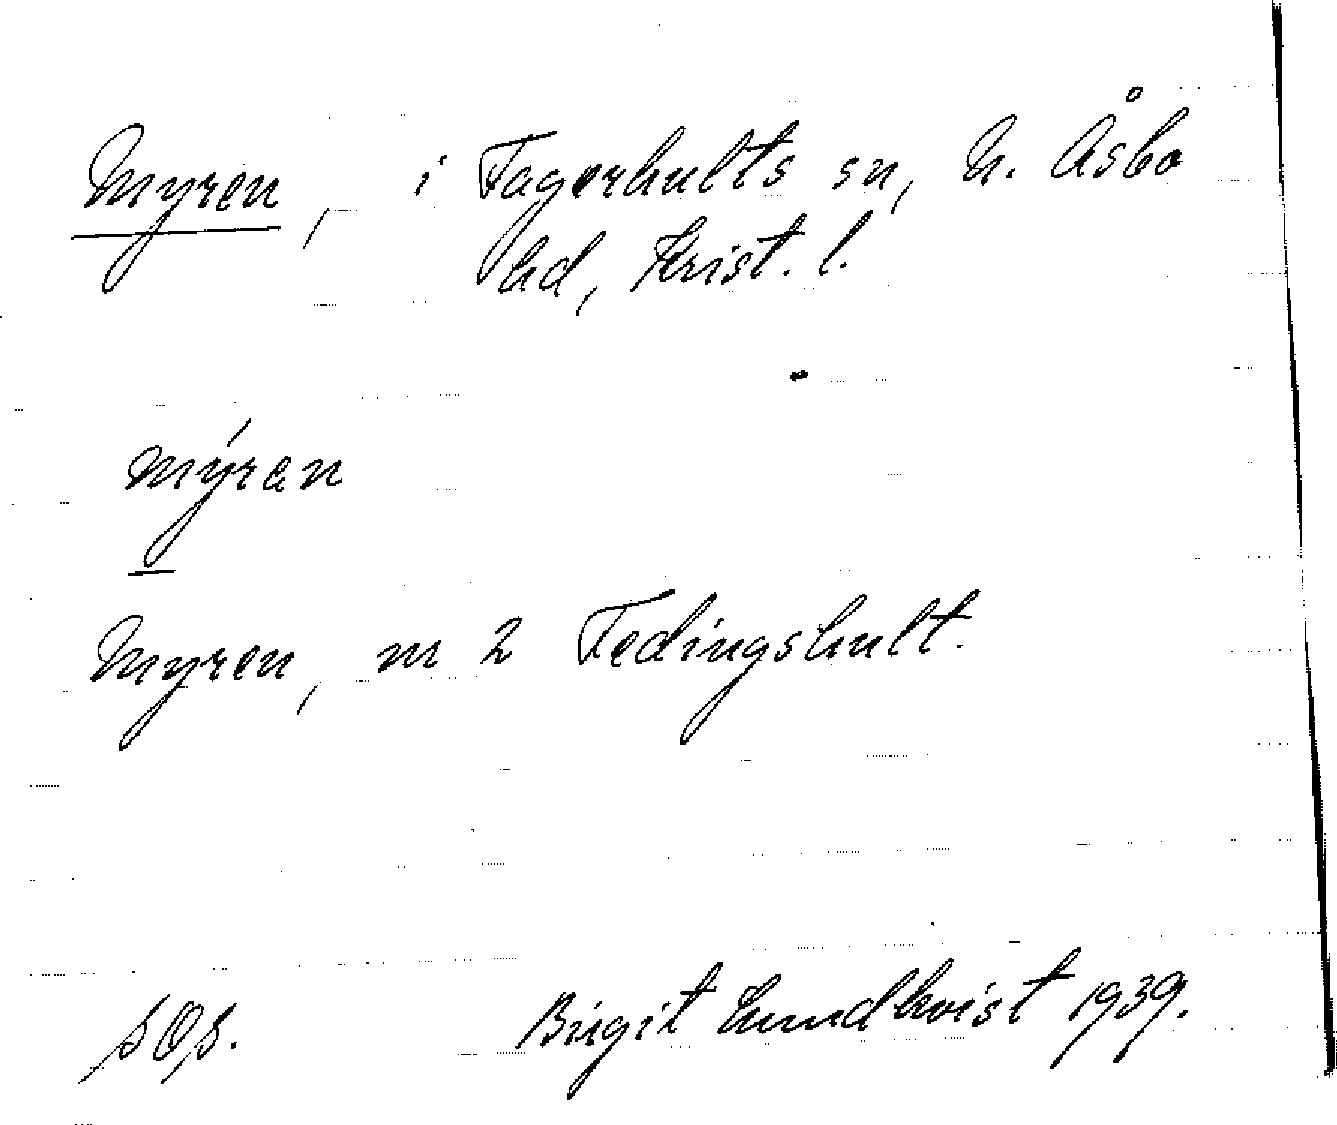 Myren, i Fagerhults sn, N. Åsbo
hd, Krist. l.
mýran
Myren, m 2 Fedingshult.
Birgit Lundkvist 1939.